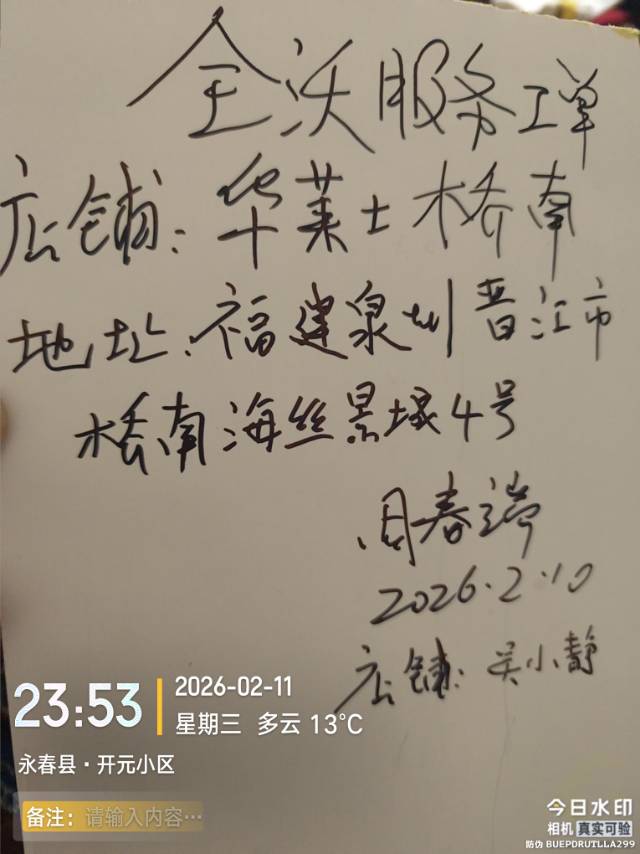 全沃服务工单
店铺：华莱士桥南
地址：福建泉州晋江市
桥南海丝景城4号
周春端
2026.2.10
店铺：吴小静
23:53
2026-02-11
星期三 多云 13℃
永春县·开元小区
备注：请输入内容…
今日水印
相机 真实可验
防伪 BUEPDRUTLLA299